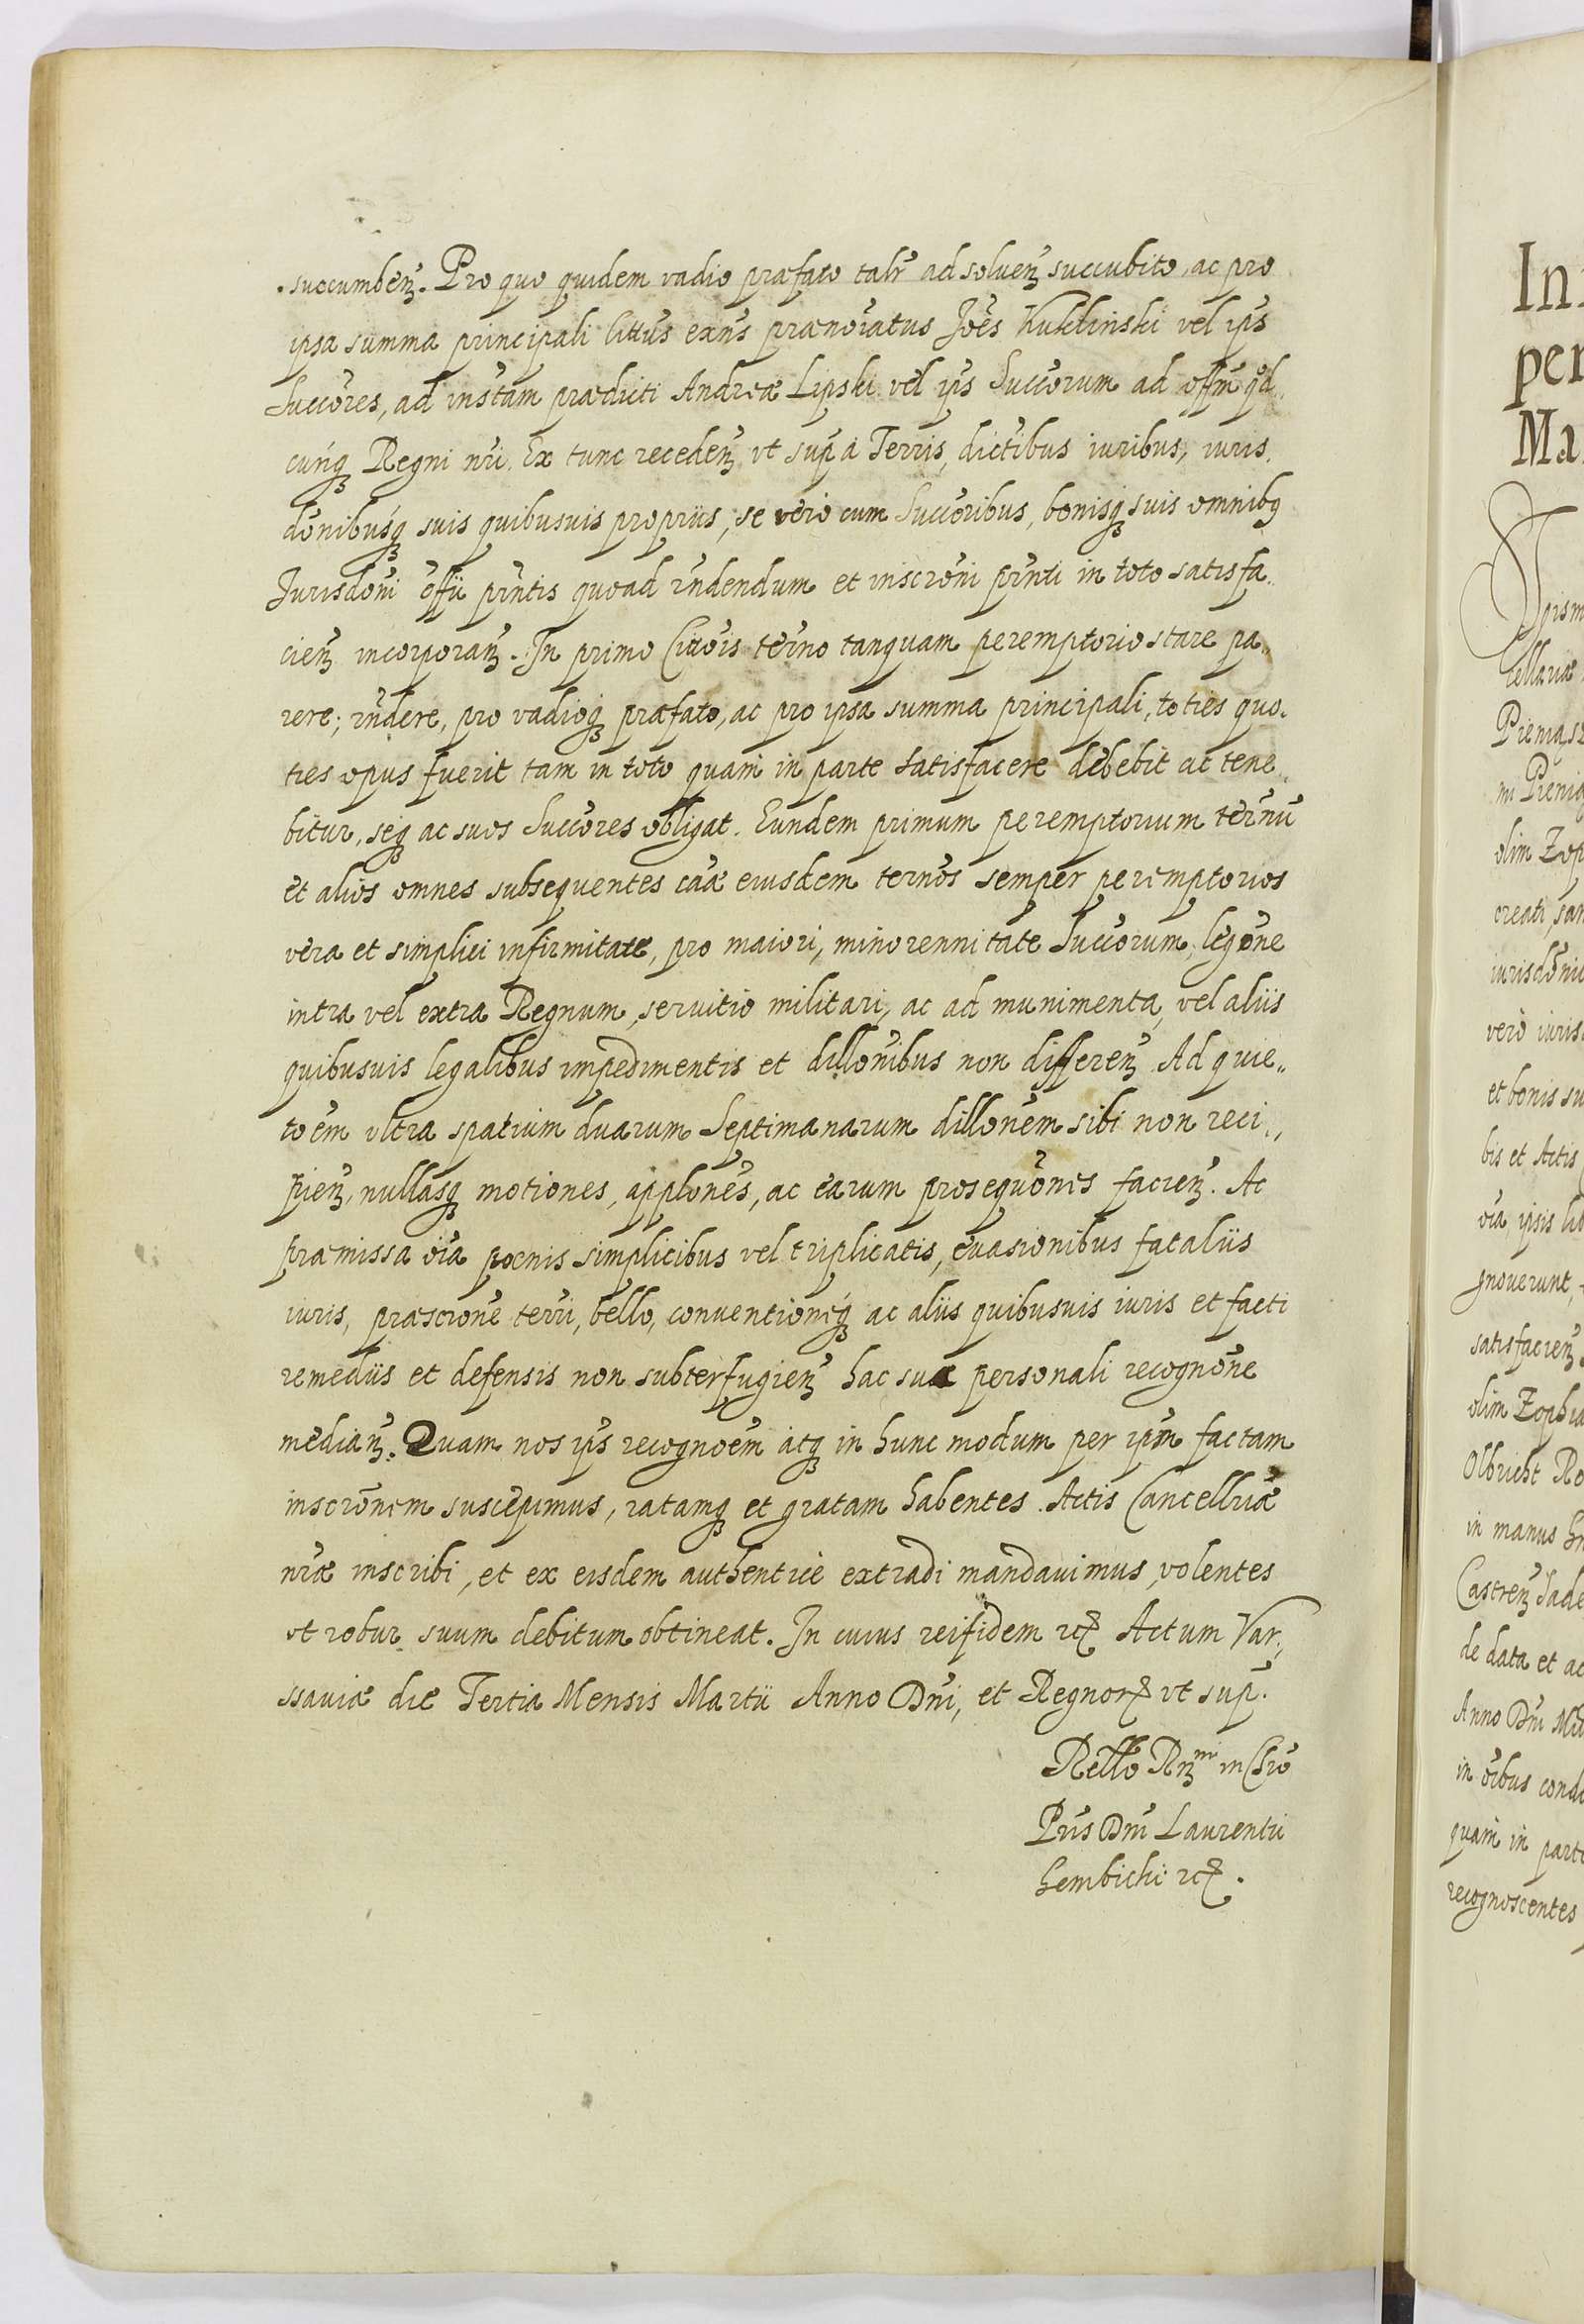 succumben̄. Pro quo quidem vadio præfato talr̃ ad soluen̄ succubito, ac pro
ipsa summa principali littūs exn̄s prænoiatus Joēs Kuklinski vel ip̄s
Succores, ad instam prædicti Andreæ Lipski vel ip̄s Succorum ad offm̄ qd̄
cunq̄ Regni nr̄i. Ex tunc receden̄ vt sup̄ a Terris, dictibus iuribus, iuris
dōnibusq̄ suis quibusuis proprijs, se vero cum Succoribus, bonisq̄ suis omnibq
Jurisdōni offii pn̄tis quoad rn̄dendum et inscrōni pn̄ti in toto satisfa
cien̄ incorporan̄. In primo Cittois termo tanquam peremptorio stare pa
rere; rn̄dere, pro vadioq̄ præfato, ac pro ipsa summa principali, toties quo
ties opus fuerit tam in toto quam in parte satisfacere debebit ac tene
bitur, seq̄ ac suos Succores obligat. Eundem primum peremptorium termū
et alios omnes subsequentes cāæ eiusdem termos semper peremptorios
vera et simplici infirmitate, pro maiori, minorennitate Succorum, legōne
intra vel extra Regnum, seruitio militari, ac ad munimenta, vel alijs
quibusuis legalibus impedimentis et dillōnibus non differen̄ Ad quie„
toēm vltra spatium duarum Septimanarum dillōnem sibi non reci„
pien̄, nullasq̄ motiones, applōnes, ac earum prosequōnes facien̄. Ac
præmissa oīa pœnis simplicibus vel triplicatis, euasionibus fatalijs
iuris, præscrīone terri, bello, conuentioneq̄ ac alijs quibusuis iuris et facti
remedijs et defensis non subterfugien̄ hac sua personali recognōne
median̄. Quam nos ip̄s recognoēm atq̄ in hunc modum per ipm̄ factam
inscrōnem suscepimus, ratamq̄ et gratam habentes. Actis Cancellriæ
nr̄æ inscribi, et ex eisdem authentice extradi mandauimus, volentes
vt robur suum debitum obtineat. In cuius rei fidem rc̄ Actum Var„
ssauiæ die Tertia Mensis Martij Anno Dn̄i, et Regnorꝝ vt sup̄.
Rello Rn̄mi in Chrō
Pr̄is Dn̄i Laurentii
Gembicki rc̄.
In
per
Ma
cellariæ
olim Zop
creati, san
iurisdōni
vero iuris
et bonis su
bis et Actis
oīa ipsis lib
gnouerunt,
satisfacien̄
olim Zophia
Olbricht Ro
in manus
Castren̄ Sade
de data et ac
Anno Dn̄i Mil
in oībus condi
quam in parte
recognoscentes